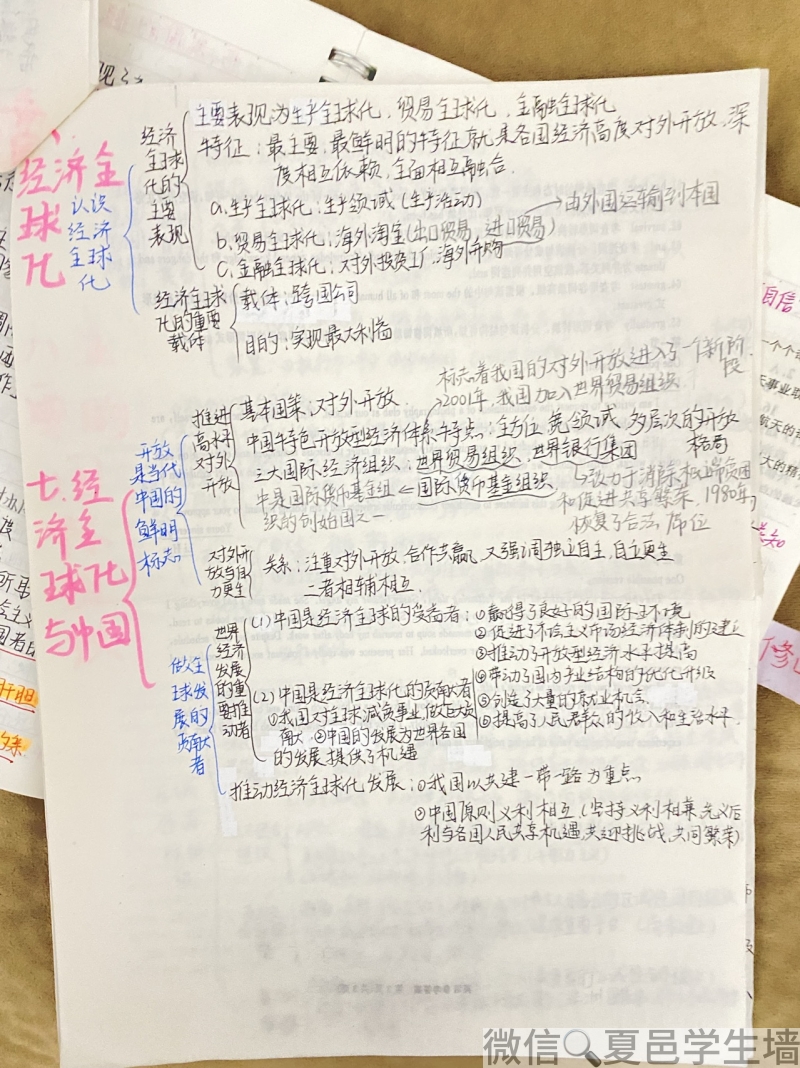 经济全球化
认识经济全球化
经济全球化的主要表现
主要表现为生产全球化，贸易全球化，金融全球化
特征：最主要，最鲜明的特征就是各国经济高度对外开放、深
度相互依赖，全面相互融合.
a.生产全球化：生产领域（生产活动）
b.贸易全球化：海外淘宝（出口贸易，进口贸易）
由外国运输到本国
c.金融全球化：对外投资工厂，海外并购
经济全球化的重要载体
载体：跨国公司
目的：实现最大利益
七.经济全球化与中国
开放是当代中国的鲜明标志
推进高水平对外开放
基本国策：对外开放.
标志着我国的对外开放进入了一个新阶段
2001年，我国加入世界贸易组织
中国特色开放型经济体系特点：全方位、宽领域、多层次的开放
格局
三大国际经济组织：世界贸易组织，世界银行集团
国际货币基金组织
中是国际货币基金组
织的创始国之一
致力于消除极端贫困
和促进共享繁荣，1980年，
恢复了合法席位
对外开放与自力更生
关系：注重对外开放，合作共赢，又强调独立自主，自立更生
二者相辅相互.
做全球发展的贡献者
世界经济发展的重要推动者
(1)中国是经济全球的受益者：①赢得了良好的国际环境
②促进了社会主义市场经济体制的建立
③推动了开放型经济水平提高
④带动了国内产业结构的优化升级
⑤创造了大量的就业机会
⑥提高了人民群众的收入和生活水平.
(2)中国是经济全球化的贡献者
①我国对全球减贫事业，做巨大贡
献大 ②中国的发展为世界各国
的发展提供了机遇
推动经济全球化发展：①我国以共建一带一路为重点
②中国原则义利相互（坚持义利相兼，先义后
利与各国人民共享机遇，共迎挑战，共同繁荣）
自信
一个个
航天的
大的精
肝胆
微信🔍夏邑学生墙